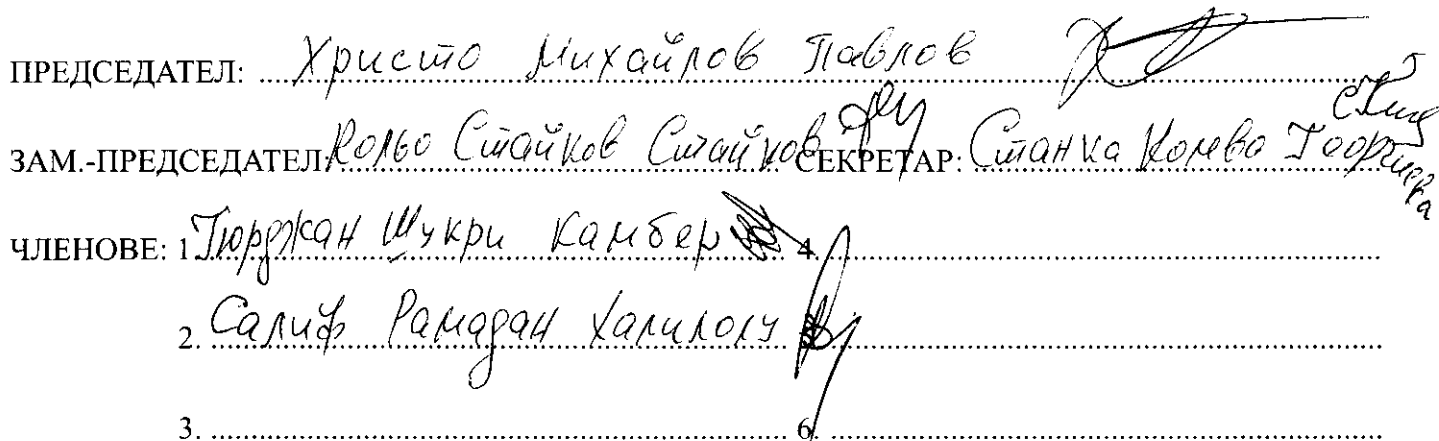 ПРЕДСЕДАТЕЛ: Христо Михайлов Павлов
ЗАМ.-ПРЕДСЕДАТЕЛ: Кольо Стайков Стайков СЕКРЕТАР: Станка Колева Георгиева
ЧЛЕНОВЕ: 1. Гюрджан Шукри Камбер 4.
2. Салиф Рамадан Халилолу
3. 6.